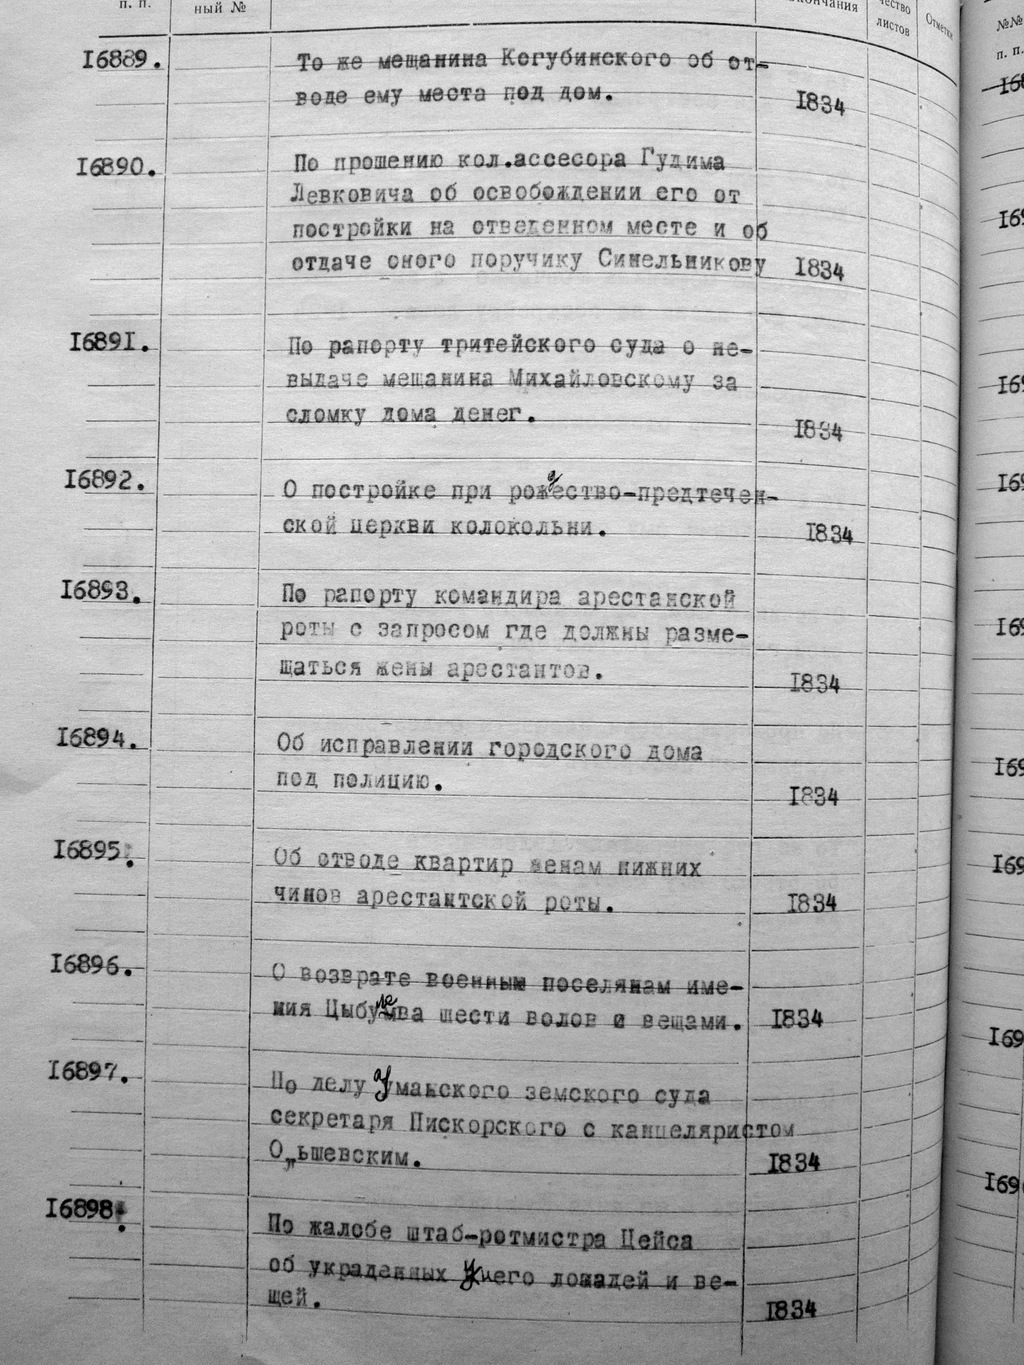 п. п.
ный №
листов
16889.
То же мещанина Когубинского об от-
воде ему места под дом.
1834
16890.
По прошению кол.ассесора Гудима
Левковича об освобождении его от
постройки на отведенном месте и об
отдаче оного поручику Синельникову
1834
16891.
По рапорту тритейского суда о не-
выдаче мещанина Михайловскому за
сломку дома денег.
1834
16892.
О постройке при рождество-предтечен-
ской церкви колокольни.
1834
16893.
По рапорту командира арестанской
роты с запросом где должны разме-
щаться жены арестантов.
1834
16894.
Об исправлении городского дома
под полицию.
1834
16895.
Об отводе квартир женам нижних
чинов арестантской роты.
1834
16896.
О возврате военным поселянам име-
ния шести волов с вещами.
1834
16897.
По делу Уманского земского суда
секретаря Пискорского с канцеляристом
Ольшевским.
1834
16898.
По жалобе штаб-ротмистра Цейса
об украденных у него лошадей и ве-
щей.
1834
№№
п. п.